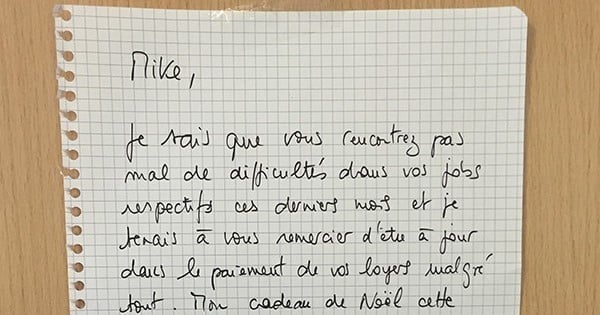 Mike,
Je sais que vous rencontrez pas
mal de difficultés dans vos jobs
respectifs ces derniers mois et je
tenais à vous remercier d'être à jour
dans le paiement de vos loyers malgré
tout. Mon cadeau de Noël cette